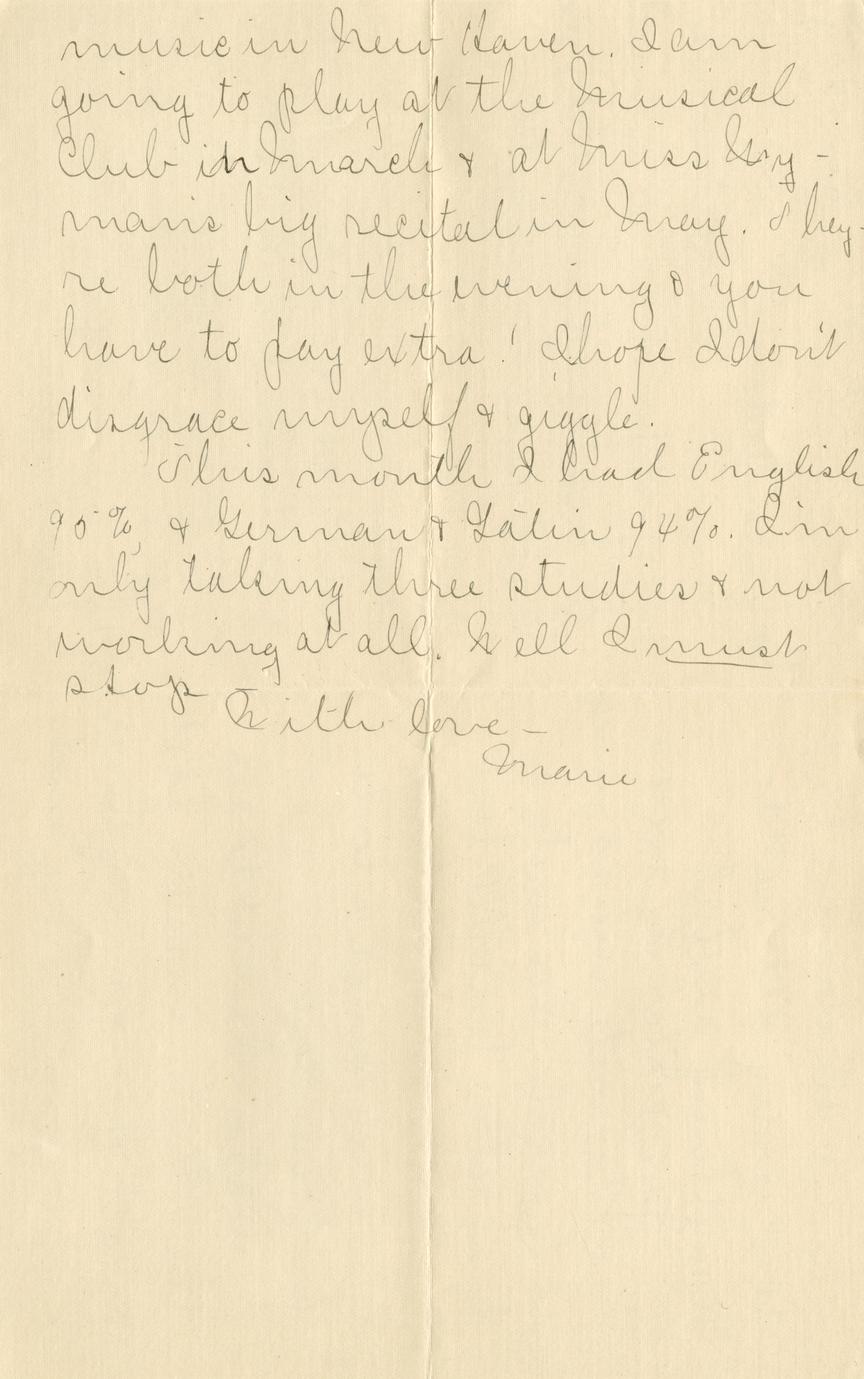 music in New Haven. I am
going to play at the Musical
Club in March & at Miss Wy-
man's big recital in May. They-
re both in the evening & you
have to pay extra! I hope I don't
disgrace myself & giggle.
This month I had English
95%, & German & Latin 94%. I'm
only taking three studies & not
working at all. Well I must
stop
With love –
Marie